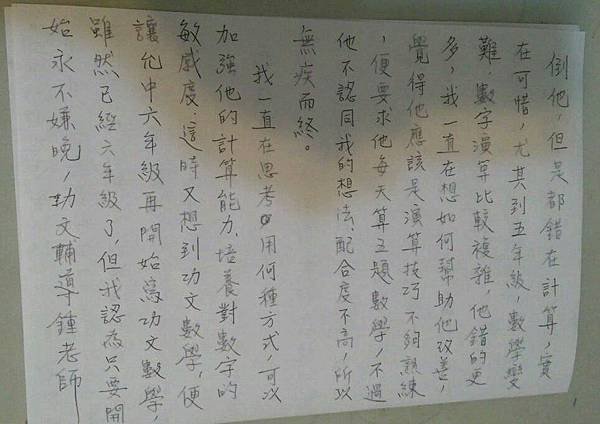 倒他，但是都錯在計算，實
在可惜，尤其到五年級，數學變
難，數字演算比較複雜，他錯的更
多，我一直在想如何幫助他改善，
覺得他應該是演算技巧不夠熟練
，便要求他每天算五題數學，不過
他不認同我的想法，配合度不高，所以
無疾而終。
我一直在思考，用何種方式，可以
加強他的計算能力，培養對數字的
敏感度，這時又想到功文數學，便
讓允中六年級再開始寫功文數學，
雖然已經六年級了，但我認為只要開
始永不嫌晚，功文輔導鍾老師